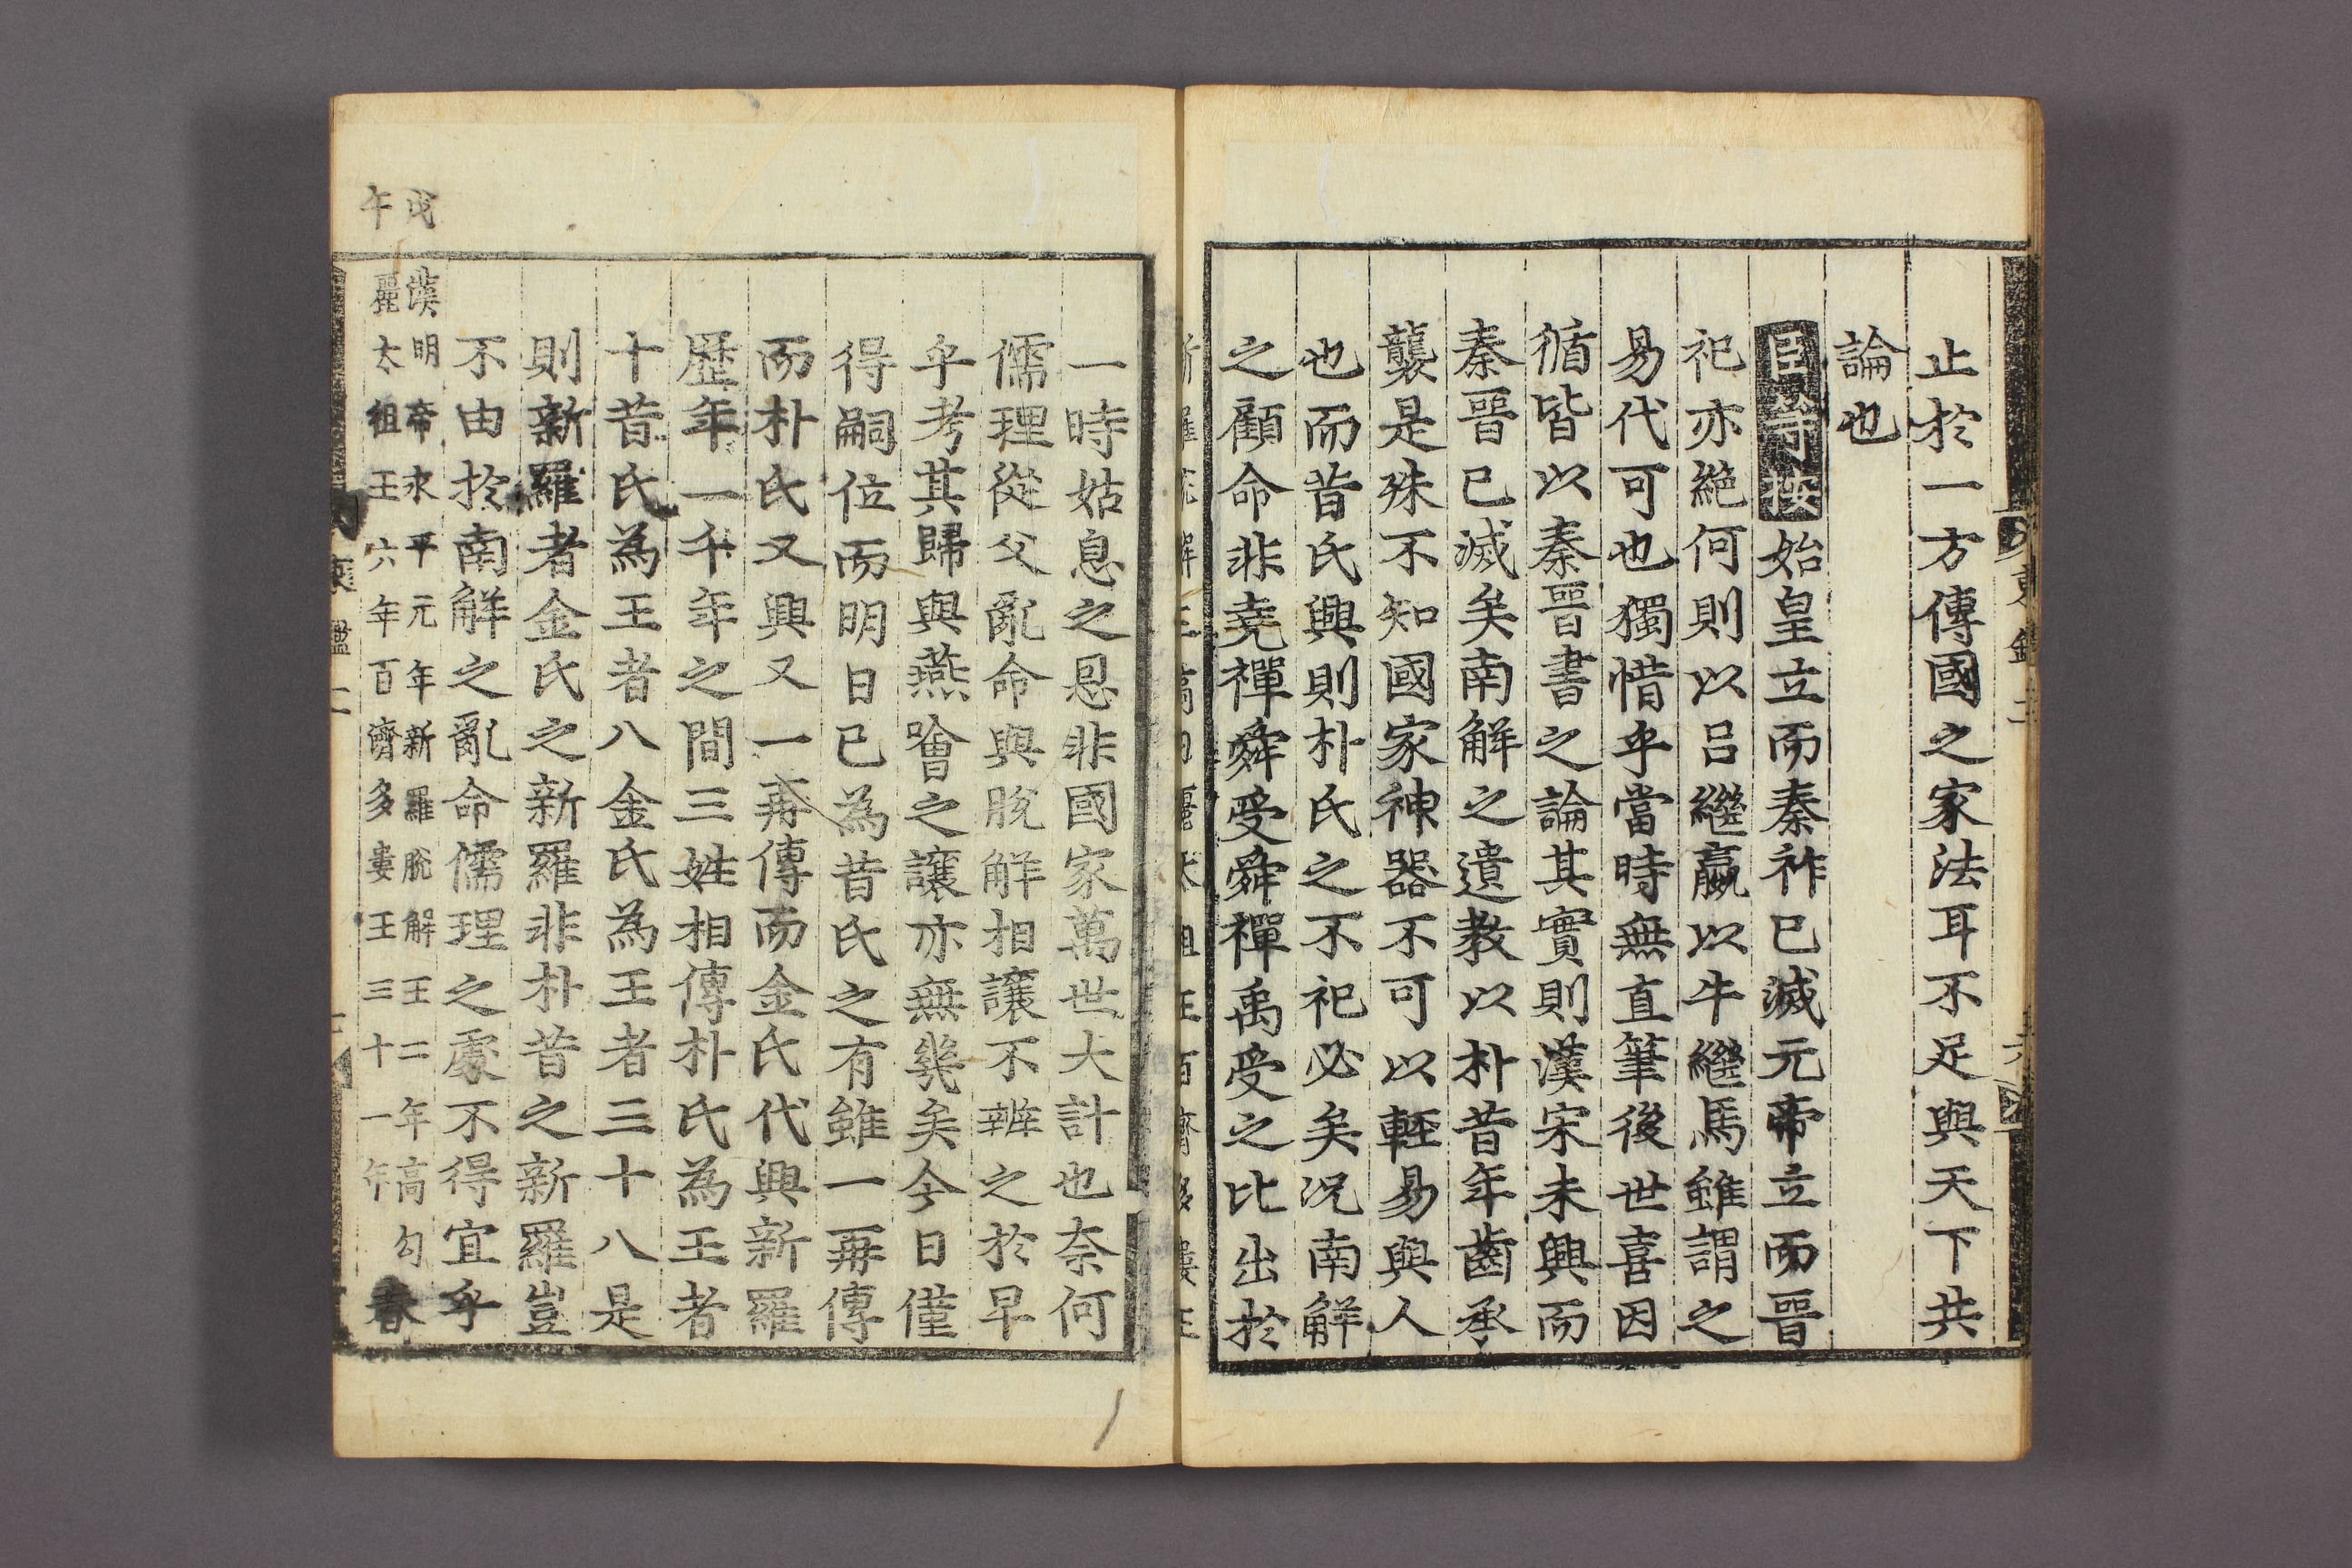 止於一方傳國之家法耳不足與天下共
論也
臣等按始皇立而秦祚已滅元帝立而晉
祀亦絶何則以呂繼嬴以牛繼馬雖謂之
易代可也獨惜乎當時無直筆後世喜因
循皆以秦晉書之論其實則漢宋未興而
秦晉已滅矣南解之遺教以朴昔年齒承
襲是殊不知國家神器不可以輕易與人
也而昔氏興則朴氏之不祀必矣況南解
之顧命非堯禪舜受舜禪禹受之比出於
一時姑息之恩非國家萬世大計也奈何
儒理從父亂命與脫解相讓不辨之於早
乎考其歸與燕噲之讓亦無幾矣今日僅
得嗣位而明日已為昔氏之有雖一再傳
而朴氏又興又一再傳而金氏代興新羅
歷年一千年之間三姓相傳朴氏為王者
十昔氏為王者八金氏為王者三十八是
則新羅者金氏之新羅非朴昔之新羅豈
不由於南解之亂命儒理之處不得宜乎
戊午
漢明帝永平元年新羅脫解王二年高句
麗太祖王六年百濟多婁王三十一年
春